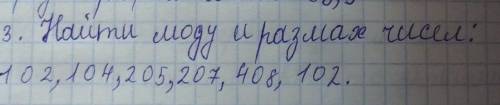 3. Найти моду и размах чисел:
102, 104, 205, 207, 408, 102.